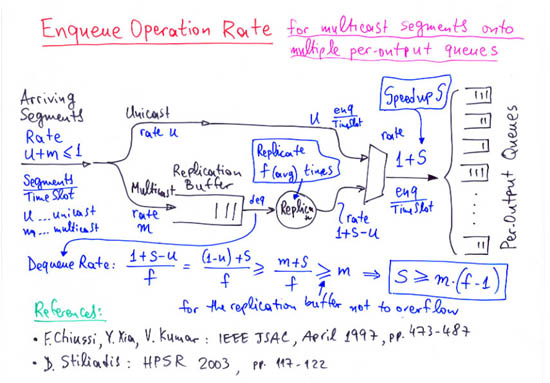 Enqueue Operation Rate for multicast segments onto
multiple per-output queues
Arriving
Segments
Rate
u+m ≤ 1
Segments/
Time Slot
u ... unicast
m ... multicast
Unicast
rate u
Multicast
rate
m
Replication
Buffer
deq
Replicate
f(avg) times
Replica-
u enq/TimeSlot
Speedup S
rate
1+S
enq/TimeSlot
rate
1+S-u
Per-Output Queues
Dequeue Rate: (1+S-u)/f = ((1-u)+S)/f ≥ (m+S)/f ≥ m ⇒ S ≥ m·(f-1)
for the replication buffer not to overflow
References:
• F. Chiussi, Y. Xia, V. Kumar: IEEE JSAC, April 1997, pp. 473-487
• D. Stiliadis: HPSR 2003, pp. 117-122